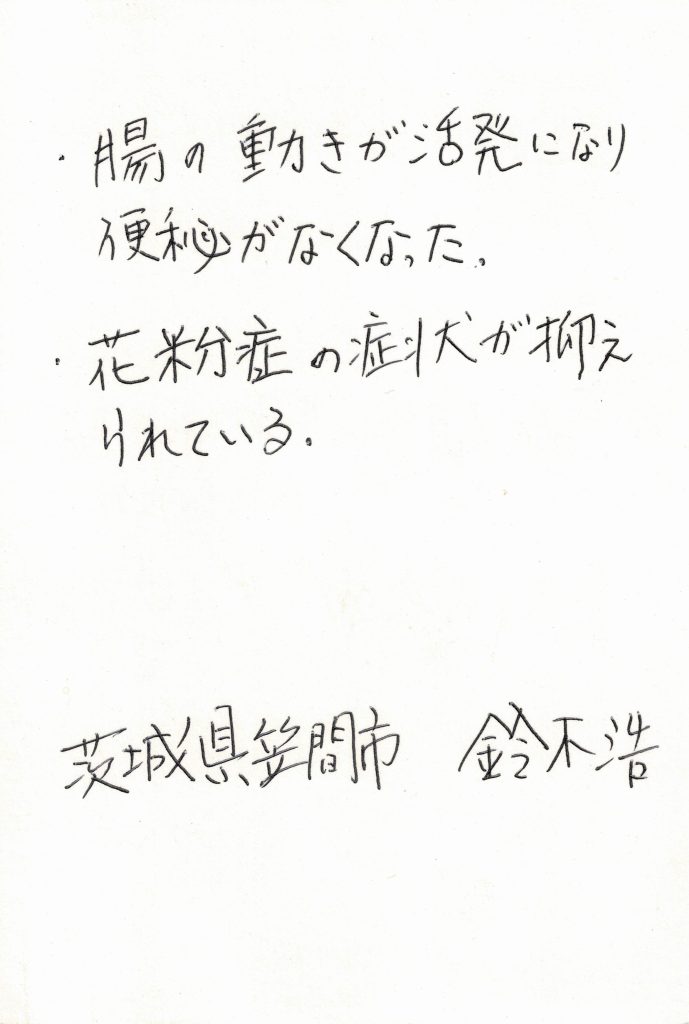 ・腸の動きが活発になり
便秘がなくなった。
・花粉症の症状が抑え
られている。
茨城県笠間市 鈴木浩